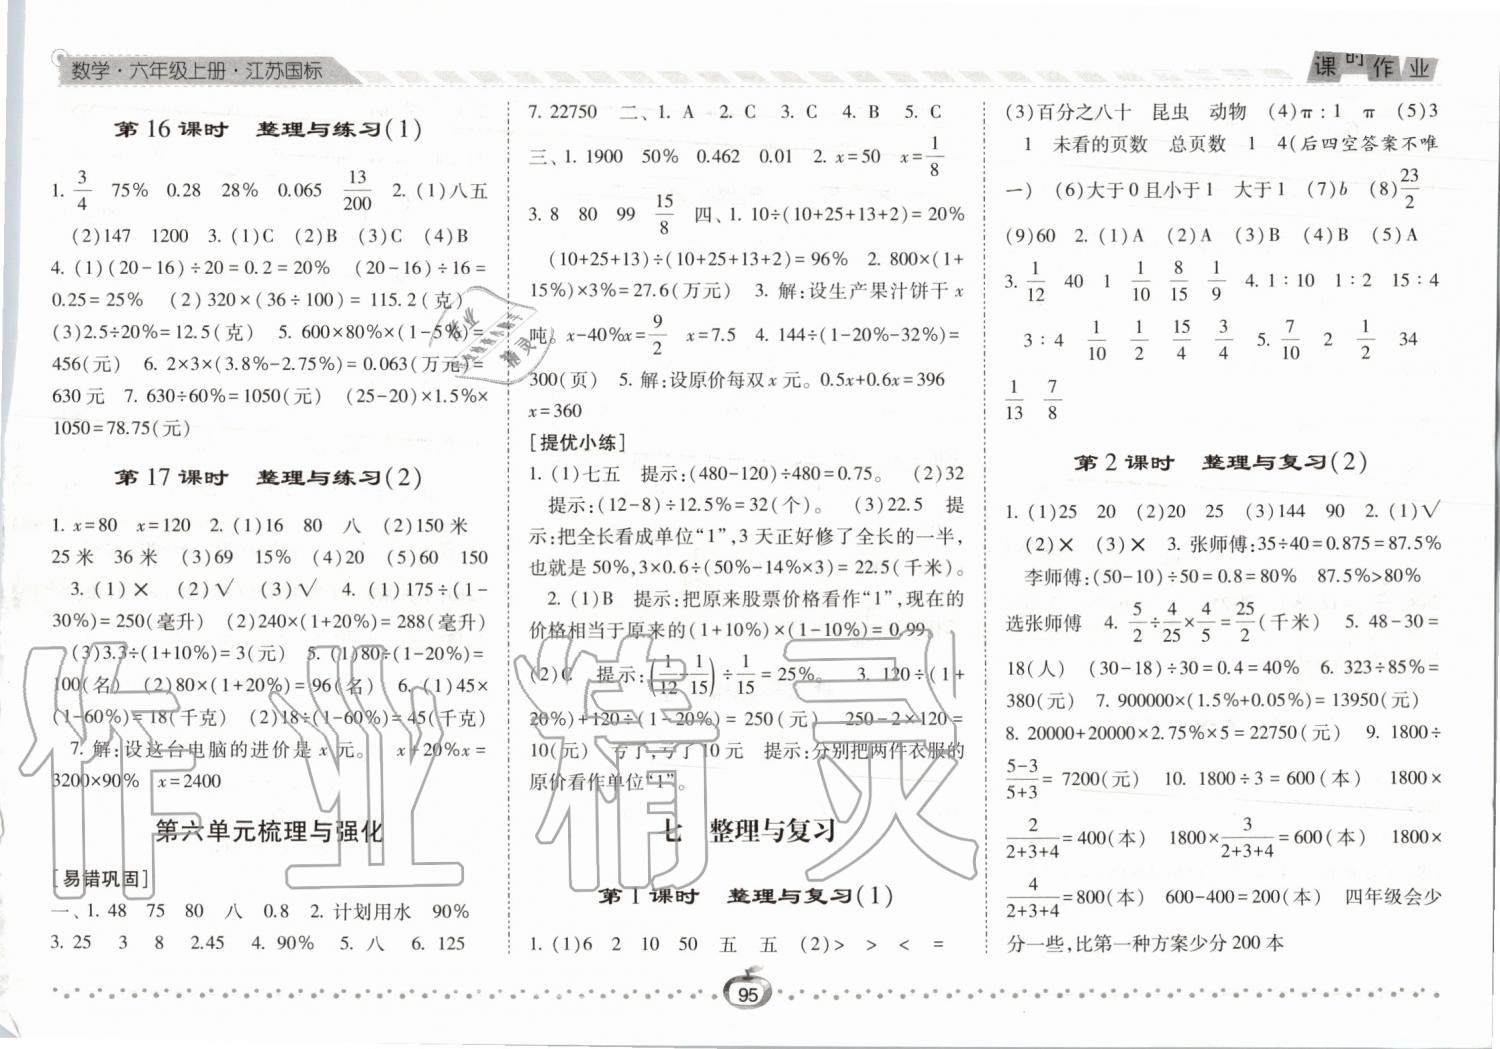 数学·六年级上册·江苏国标
课时作业
第16课时 整理与练习(1)
1. 3/4 75% 0.28 28% 0.065 13/200 2. (1)八五
(2)147 1200 3. (1)C (2)B (3)C (4)B
4. (1)(20-16)÷20=0.2=20% (20-16)÷16=
0.25=25% (2)320×(36÷100)=115.2(克)
(3)2.5÷20%=12.5(克) 5. 600×80%×(1-5%)=
456(元) 6. 2×3×(3.8%-2.75%)=0.063(万元)=
630元 7. 630÷60%=1050(元) (25-20)×1.5%×
1050=78.75(元)
第17课时 整理与练习(2)
1. x=80 x=120 2. (1)16 80 八 (2)150米
25米 36米 (3)69 15% (4)20 (5)60 150
3. (1)× (2)√ (3)√ 4. (1)175÷(1-
30%)=250(毫升) (2)240×(1+20%)=288(毫升)
(3)3.3÷(1+10%)=3(元) 5. (1)80÷(1-20%)=
100(名) (2)80×(1+20%)=96(名) 6. (1)45×
(1-60%)=18(千克) (2)18÷(1-60%)=45(千克)
7. 解:设这台电脑的进价是x元。 x+20%x=
3200×90% x=2400
第六单元梳理与强化
[易错巩固]
一、1. 48 75 80 八 0.8 2. 计划用水 90%
3. 25 3 8 2.45 4. 90% 5. 八 6. 125
7. 22750 二、1. A 2. C 3. C 4. B 5. C
三、1. 1900 50% 0.462 0.01 2. x=50 x=1/8
3. 8 80 99 15/8 四、1. 10÷(10+25+13+2)=20%
(10+25+13)÷(10+25+13+2)=96% 2. 800×(1+
15%)×3%=27.6(万元) 3. 解:设生产果汁饼干x
吨。x-40%x=9/2 x=7.5 4. 144÷(1-20%-32%)=
300(页) 5. 解:设原价每双x元。0.5x+0.6x=396
x=360
[提优小练]
1. (1)七五 提示:(480-120)÷480=0.75。 (2)32
提示:(12-8)÷12.5%=32(个)。 (3)22.5 提
示:把全长看成单位“1”,3天正好修了全长的一半,
也就是50%,3×0.6÷(50%-14%×3)=22.5(千米)。
2. (1)B 提示:把原来股票价格看作“1”,现在的
价格相当于原来的(1+10%)×(1-10%)=0.99。
(2)C 提示:(1/12-1/15)÷1/15=25%。 3. 120÷(1+
20%)+120÷(1-20%)=250(元) 250-2×120=
10(元) 亏了,亏了10元 提示:分别把两件衣服的
原价看作单位“1”。
七 整理与复习
第1课时 整理与复习(1)
1. (1)6 2 10 50 五 五 (2)> > < =
(3)百分之八十 昆虫 动物 (4)π:1 π (5)3
1 未看的页数 总页数 1 4(后四空答案不唯
一) (6)大于0且小于1 大于1 (7)b (8)23/2
(9)60 2. (1)A (2)A (3)B (4)B (5)A
3. 1/12 40 1 1/10 8/15 1/9 4. 1:10 1:2 15:4
3:4 1/10 1/2 15/4 3/4 5. 7/10 2 1/2 34
1/13 7/8
第2课时 整理与复习(2)
1. (1)25 20 (2)20 25 (3)144 90 2. (1)√
(2)× (3)× 3. 张师傅:35÷40=0.875=87.5%
李师傅:(50-10)÷50=0.8=80% 87.5%>80%
选张师傅 4. 5/2÷4/25×4/5=25/2(千米) 5. 48-30=
18(人) (30-18)÷30=0.4=40% 6. 323÷85%=
380(元) 7. 900000×(1.5%+0.05%)=13950(元)
8. 20000+20000×2.75%×5=22750(元) 9. 1800÷
5-3/5+3=7200(元) 10. 1800÷3=600(本) 1800×
2/2+3+4=400(本) 1800×3/2+3+4=600(本) 1800×
4/2+3+4=800(本) 600-400=200(本) 四年级会少
分一些,比第一种方案少分200本
95
作业精灵